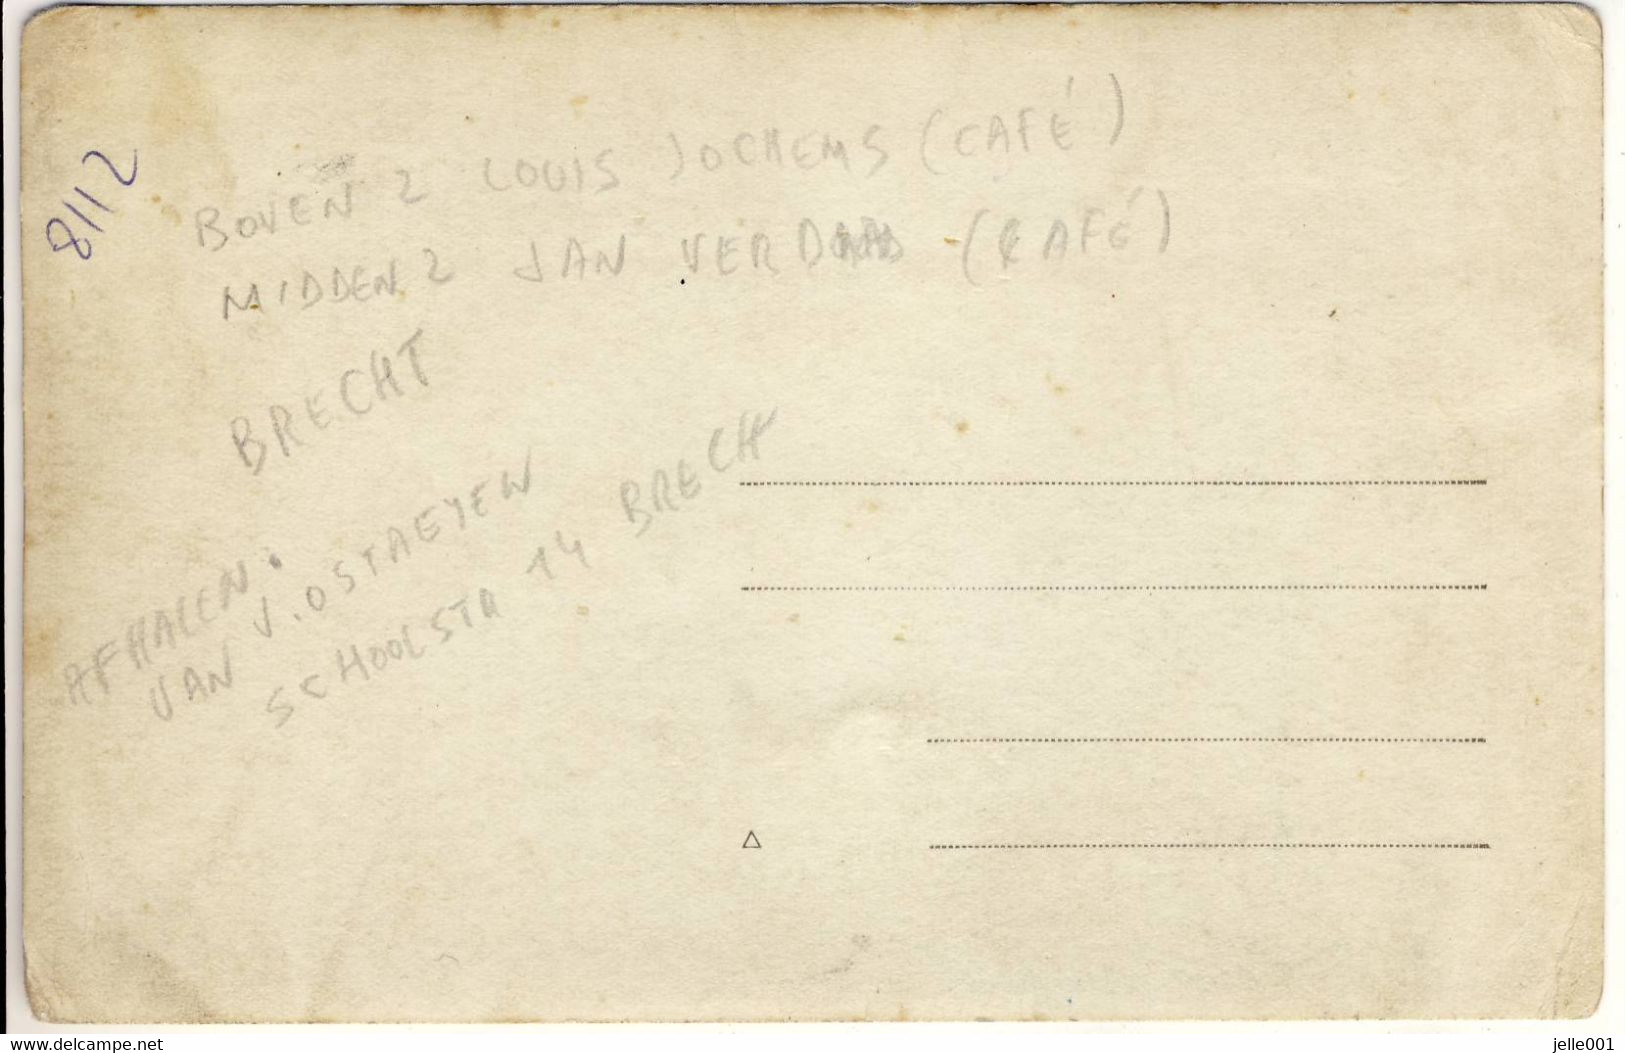 8112
BOVEN 2 LOUIS JOCHEMS (CAFÉ)
MIDDEN 2 JAN (CAFÉ)
BRECHT
AFHALEN:
VAN J. OSTAEYEN
SCHOOLSTR 14 BRECHT
www.delcampe.net
jelle001